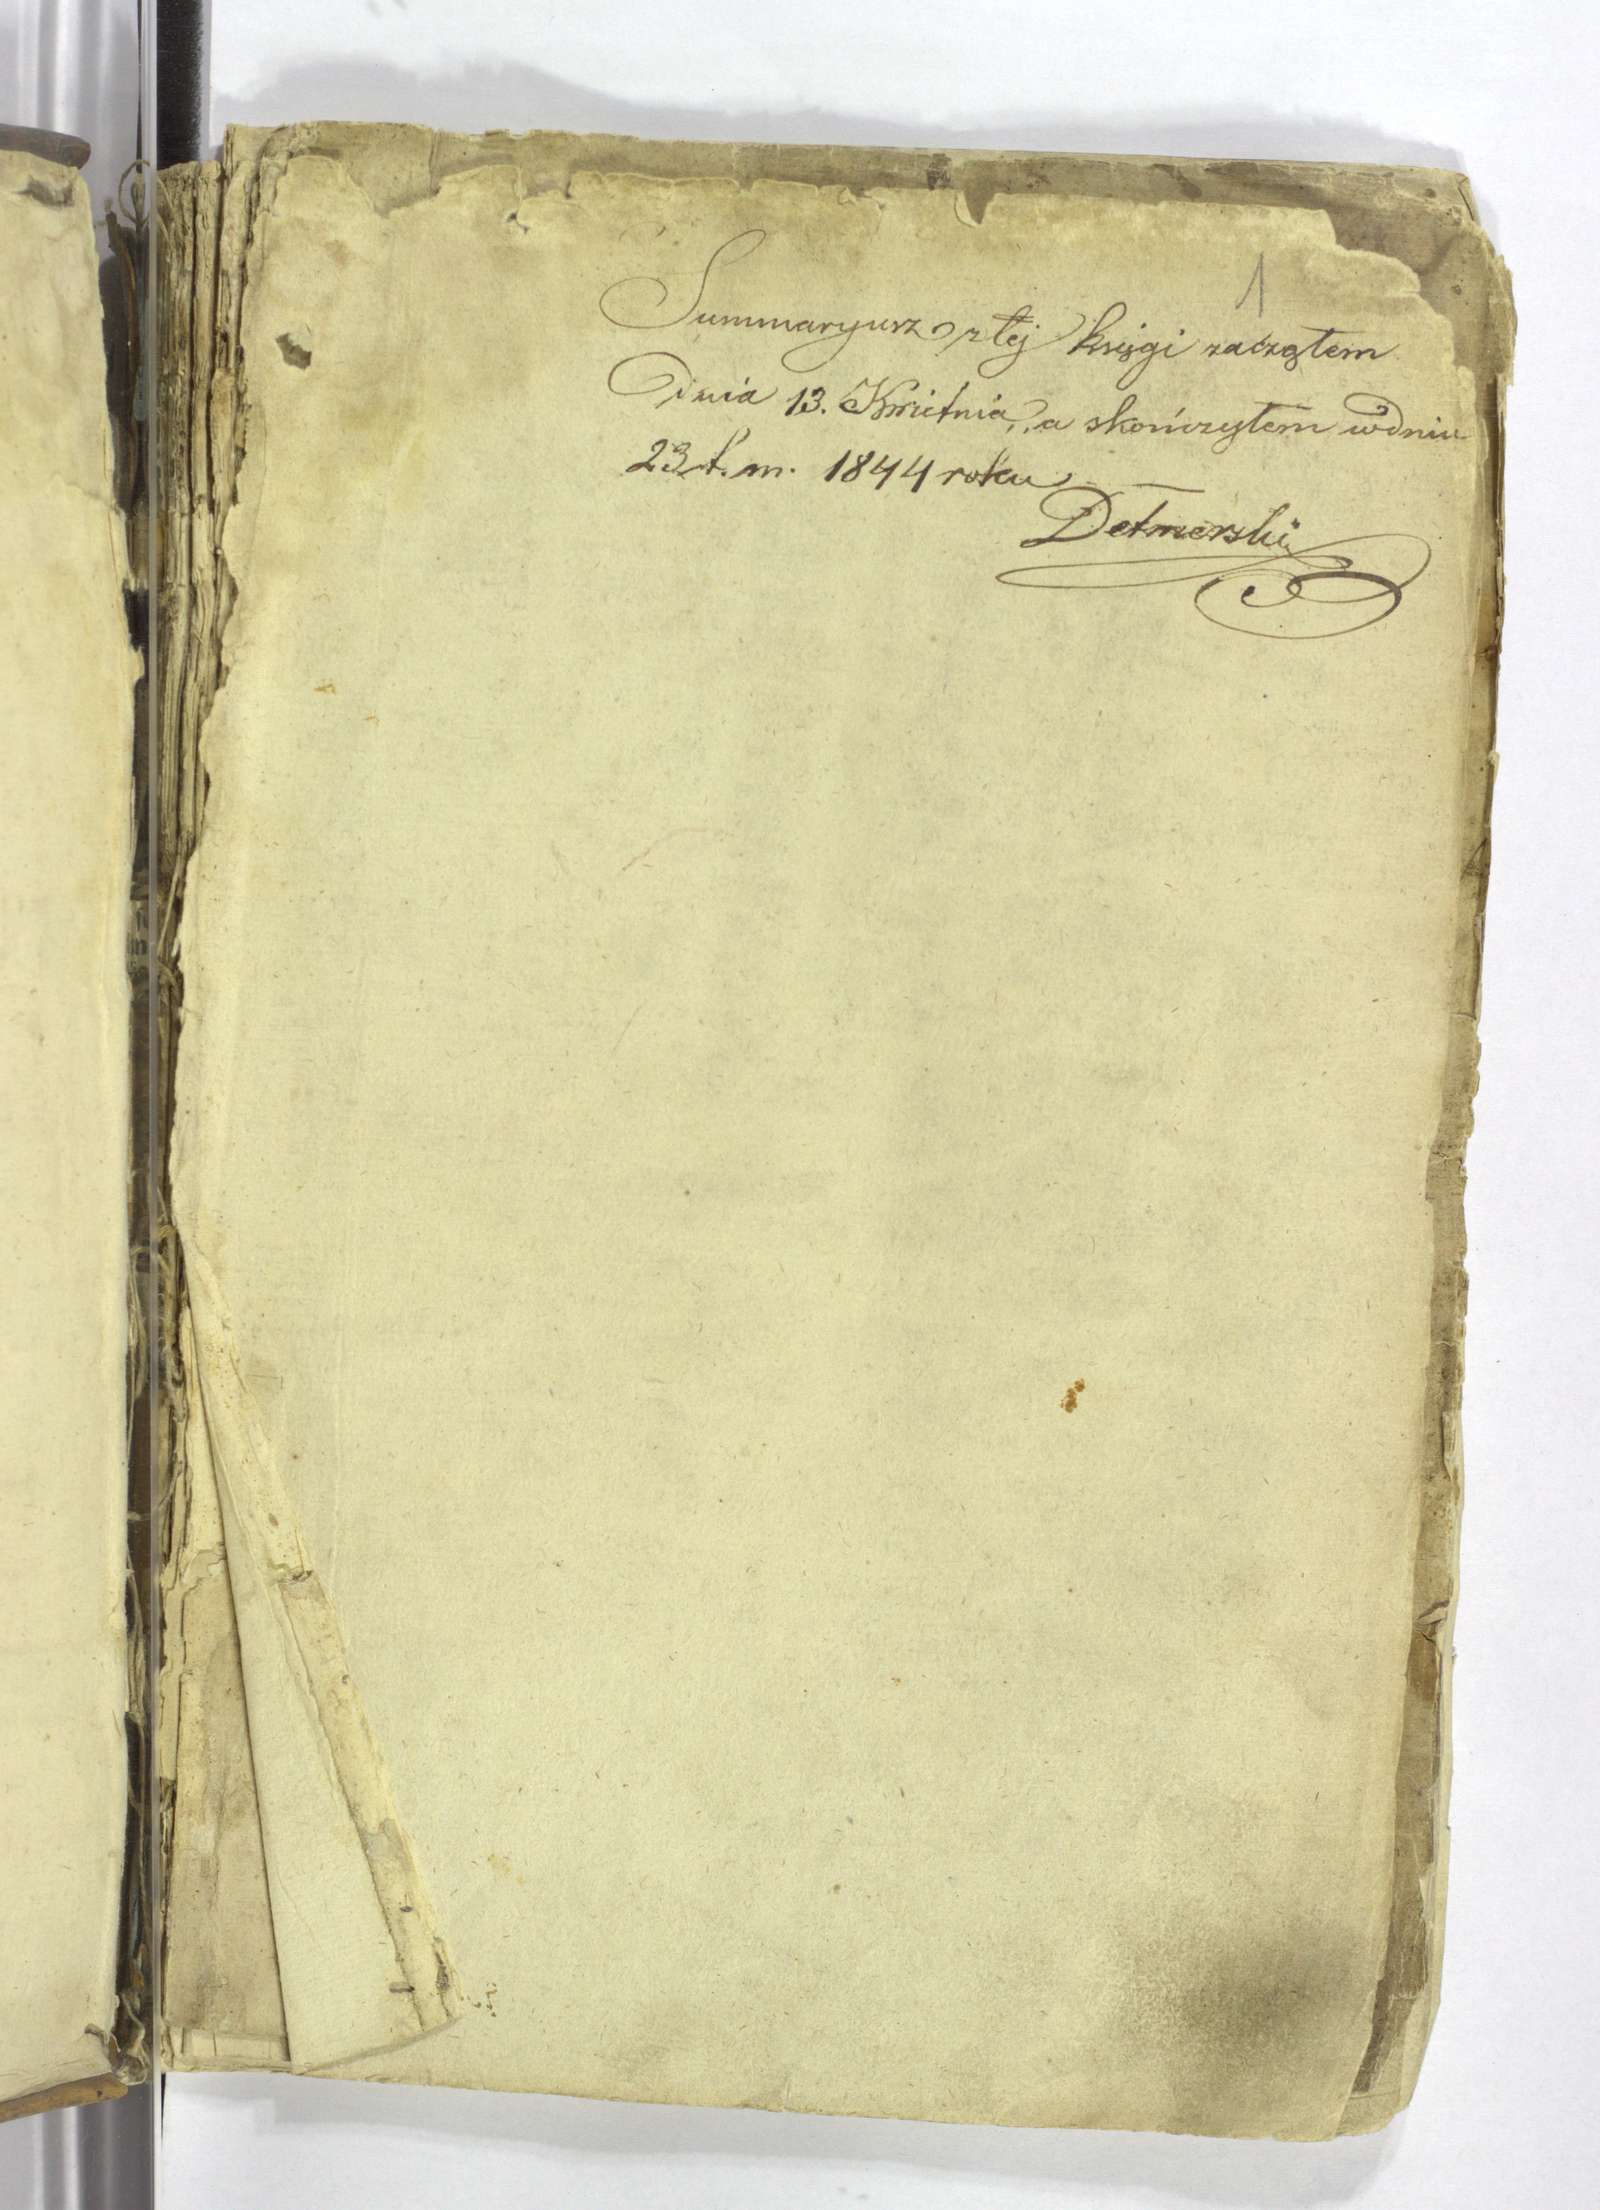 1
Summaryusz z tej księgi zacząłem
Dnia 13. Kwietnia, a skończyłem w dniu
23 t. m. 1844 roku
Detmerski